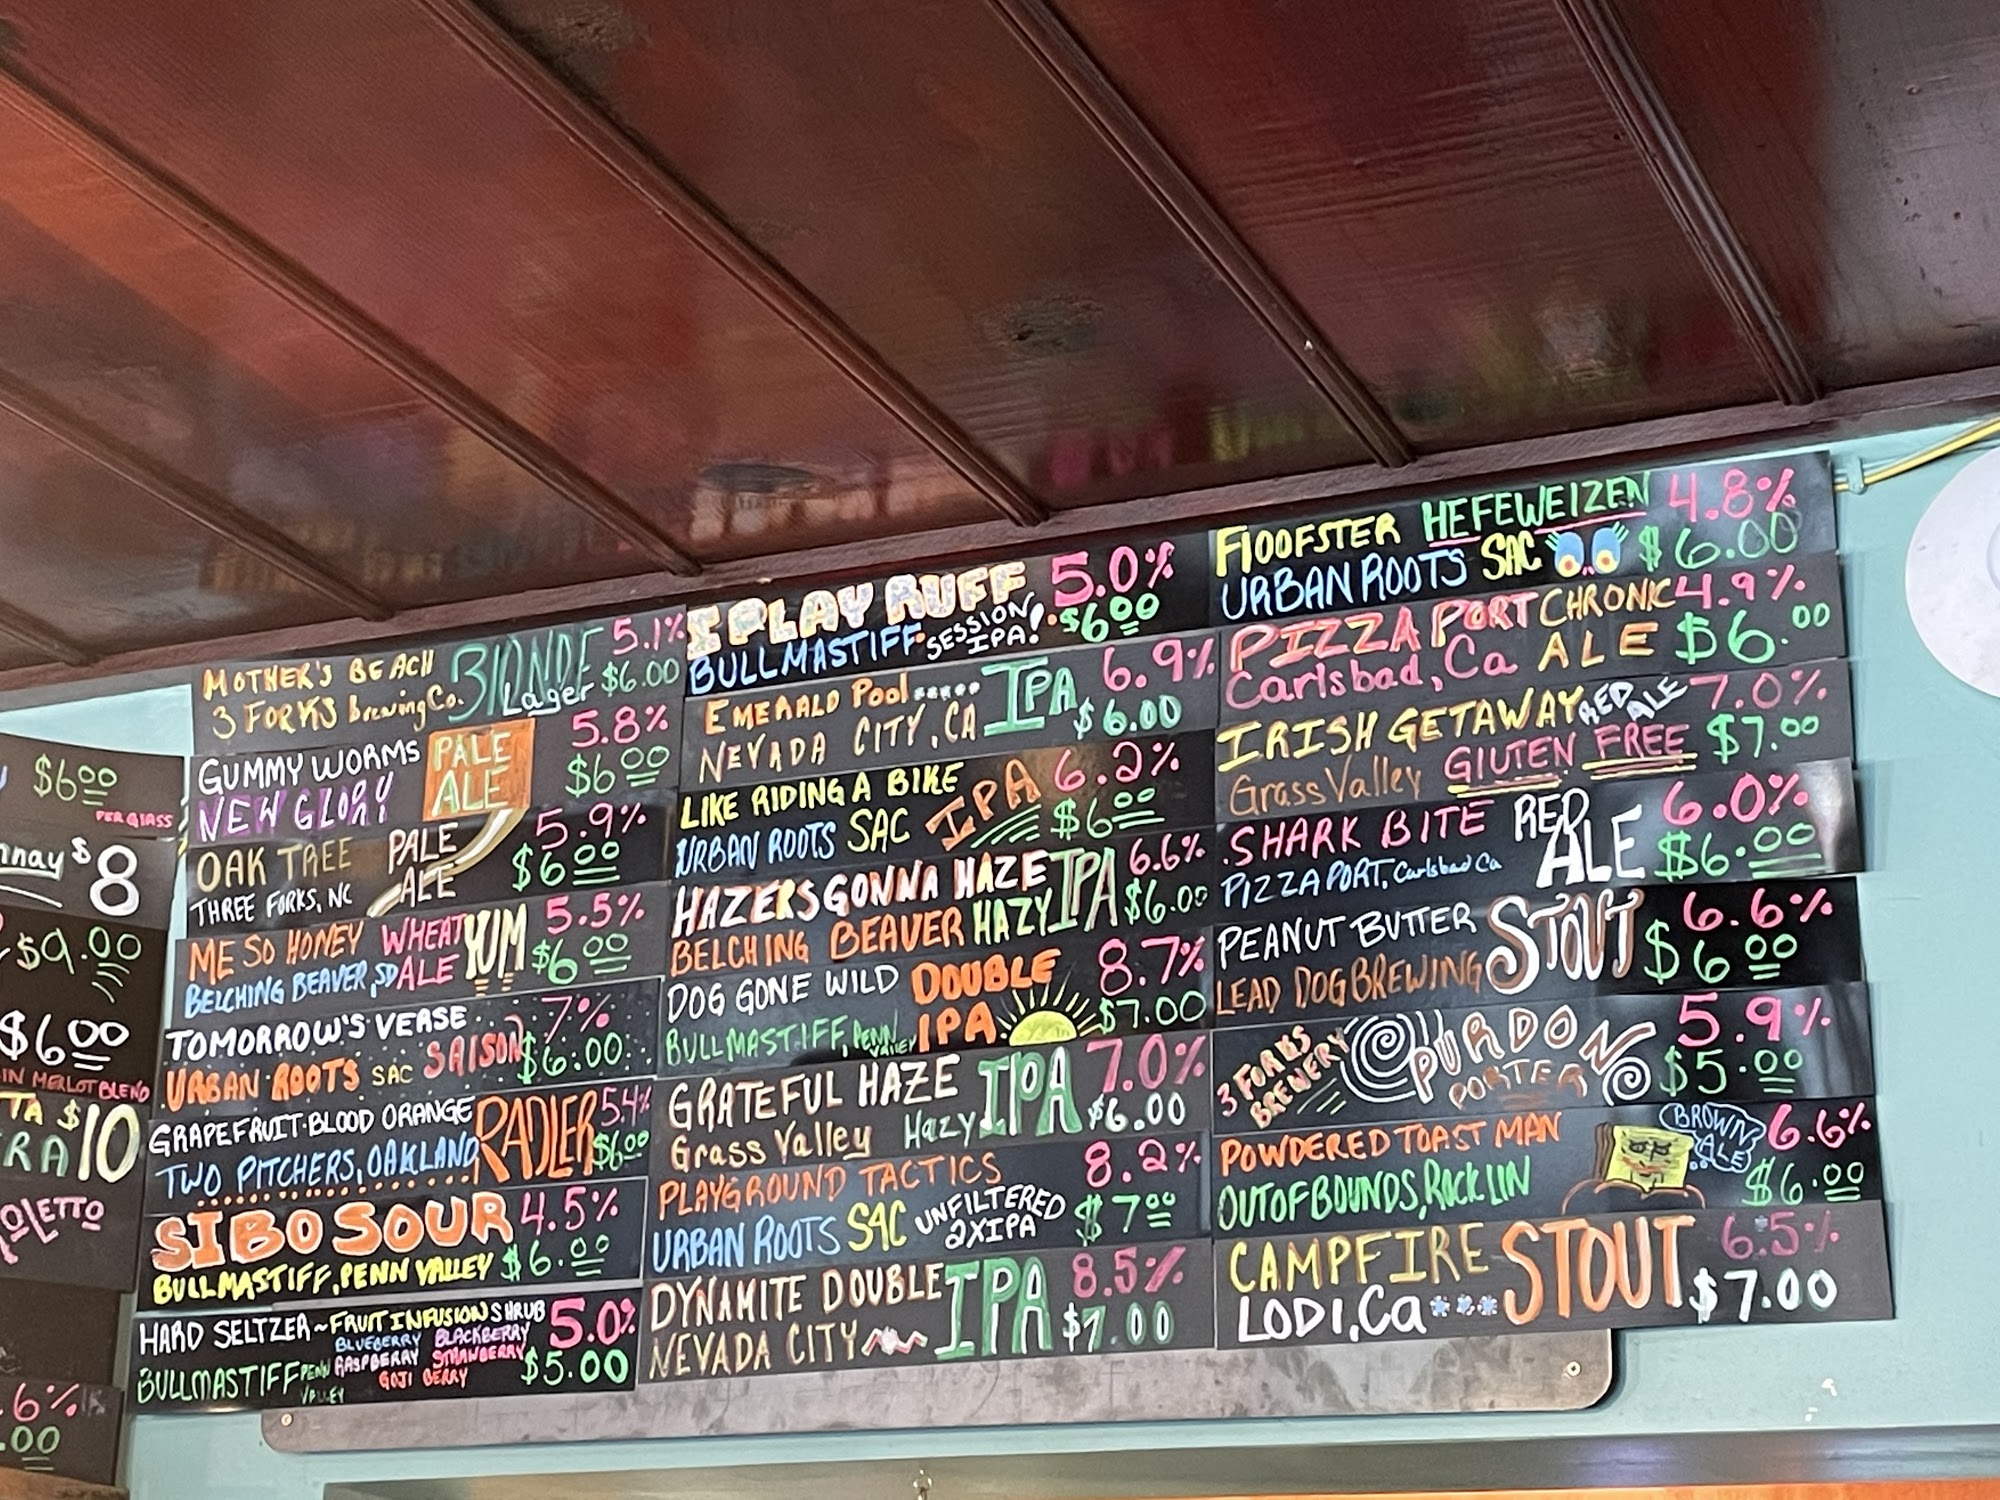 $6.00
PER GLASS
$8
$9.00
$6.00
IN MERLOT BLEND
TA $10
RA
OLETTO
6%
.00
MOTHER'S BEACH BLONDE 5.1%
3 FORKS Brewing Co. Lager $6.00
GUMMY WORMS PALE 5.8%
NEW GLORY ALE $6.00
OAK TREE PALE 5.9%
THREE FORKS, NC ALE $6.00
ME SO HONEY WHEAT YUM 5.5%
BELCHING BEAVER, SD ALE $6.00
TOMORROW'S VERSE 7%
URBAN ROOTS SAC SAISON $6.00
GRAPEFRUIT·BLOOD ORANGE RADLER 5.4%
TWO PITCHERS, OAKLAND $6.00
SIBO SOUR 4.5%
BULLMASTIFF, PENN VALLEY $6.00
HARD SELTZER~FRUIT INFUSION SHRUB 5.0%
BLUEBERRY BLACKBERRY
BULLMASTIFF PENN VALLEY RASPBERRY STRAWBERRY $5.00
GOJI BERRY
I PLAY RUFF 5.0%
BULLMASTIFF SESSION IPA! $6.00
EMERALD POOL..... IPA 6.9%
NEVADA CITY, CA $6.00
LIKE RIDING A BIKE IPA 6.2%
URBAN ROOTS SAC $6.00
HAZERS GONNA HAZE IPA 6.6%
BELCHING BEAVER HAZY $6.00
DOG GONE WILD DOUBLE 8.7%
BULLMASTIFF, PENN VALLEY IPA $7.00
GRATEFUL HAZE IPA 7.0%
Grass Valley Hazy $6.00
PLAYGROUND TACTICS 8.2%
URBAN ROOTS SAC UNFILTERED 2XIPA $7.00
DYNAMITE DOUBLE IPA 8.5%
NEVADA CITY $7.00
FLOOFSTER HEFEWEIZEN 4.8%
URBAN ROOTS SAC $6.00
PIZZA PORT CHRONIC 4.9%
Carlsbad, Ca ALE $6.00
IRISH GETAWAY RED ALE 7.0%
Grass Valley GLUTEN FREE $7.00
SHARK BITE RED 6.0%
PIZZA PORT, Carlsbad Ca ALE $6.00
PEANUT BUTTER STOUT 6.6%
LEAD DOG BREWING $6.00
3 FORKS BREWERY PURDON 5.9%
PORTER $5.00
POWDERED TOAST MAN BROWN ALE 6.6%
OUT OF BOUNDS, ROCKLIN $6.00
CAMPFIRE STOUT 6.5%
LODI, Ca $7.00